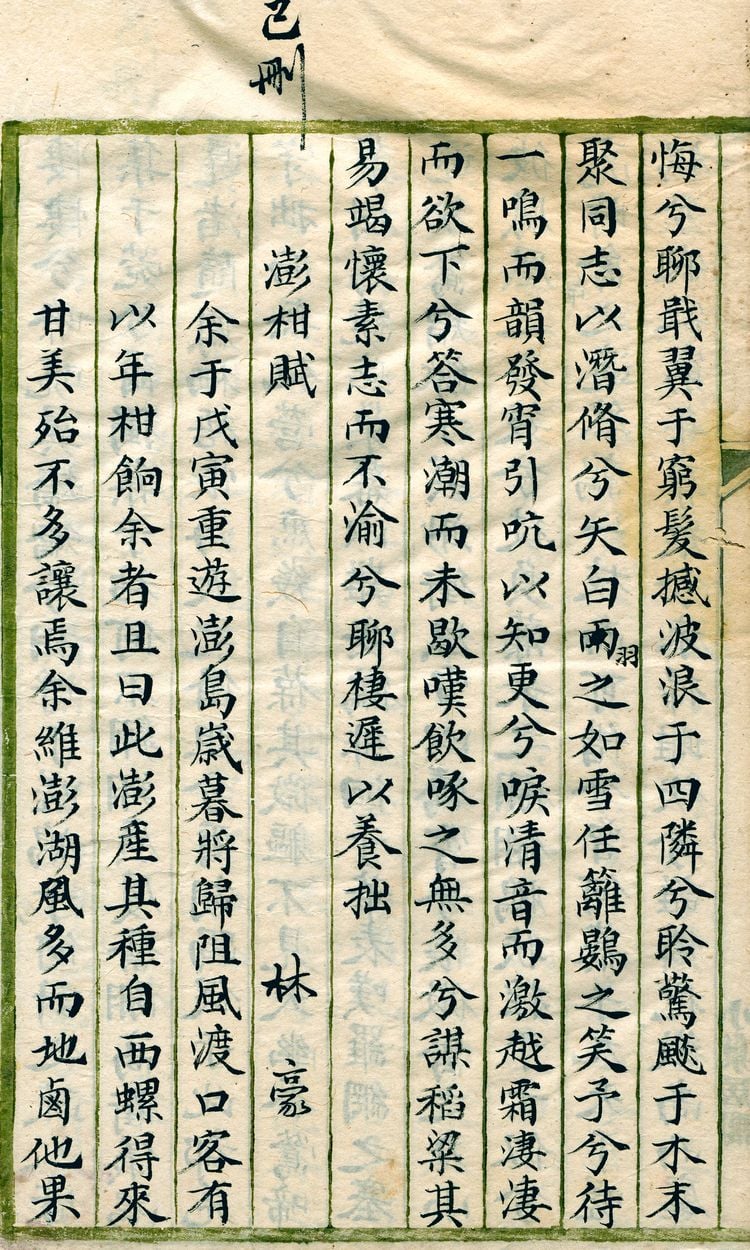 已刪
悔兮聊戢翼于窮髮撼波浪于四隣兮聆驚颷于木末
聚同志以潛脩兮矢白雨羽之如雪任籬鷃之笑予兮待
一鳴而韻發宵引吭以知更兮唳清音而激越霜淒淒
而欲下兮答寒潮而未歇嘆飲啄之無多兮謀稻粱其
易竭懷素志而不渝兮聊棲遲以養拙
澎柑賦 林豪
余于戊寅重遊澎島歲暮將歸阻風渡口客有
以年柑餉余者且曰此澎產其種自西螺得來
甘美殆不多讓焉余維澎湖風多而地鹵他果